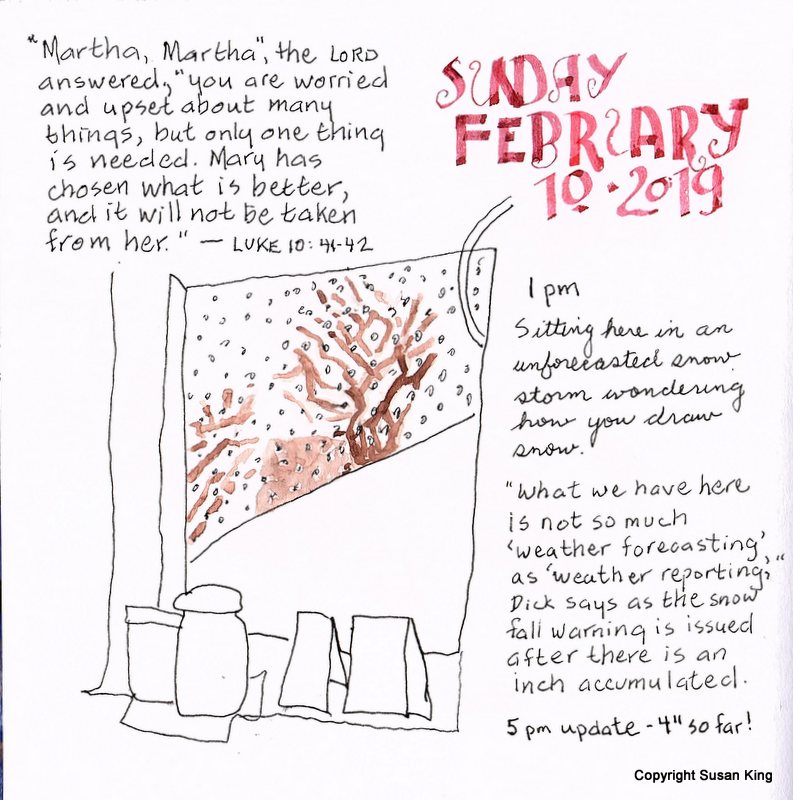 "Martha, Martha", the LORD
answered, "you are worried
and upset about many
things, but only one thing
is needed. Mary has
chosen what is better,
and it will not be taken
from her." — LUKE 10:41-42
SUNDAY
FEBRUARY
10·2019
1 pm
Sitting here in an
unforecasted snow
storm wondering
how you draw
snow.
"What we have here
is not so much
'weather forecasting'
as 'weather reporting,'"
Dick says as the snow
fall warning is issued
after there is an
inch accumulated.
5 pm update - 4" so far!
Copyright Susan King